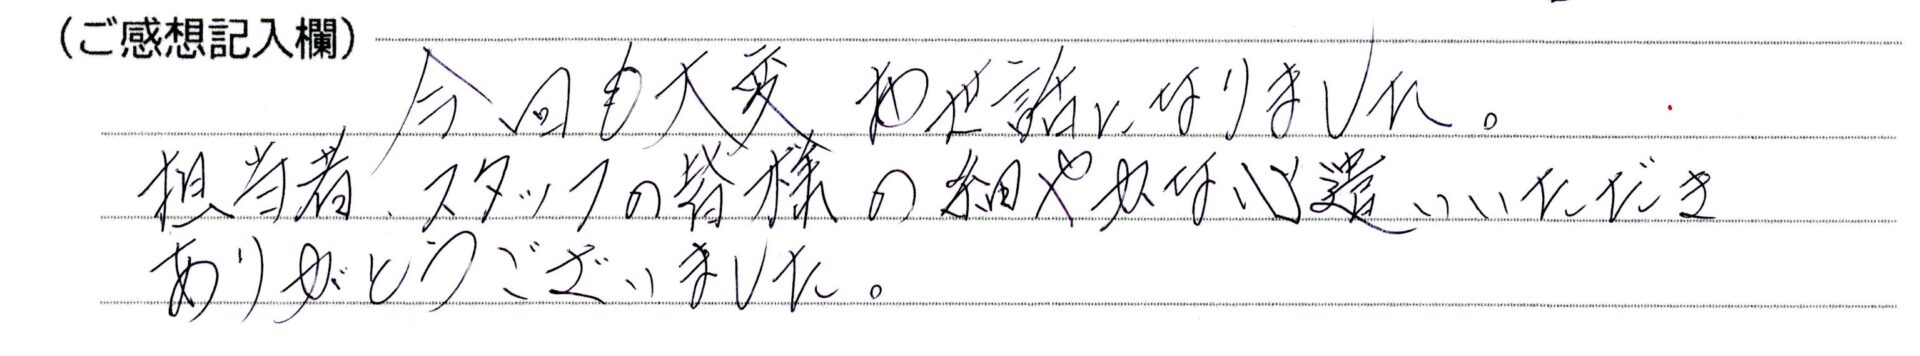 （ご感想記入欄）
今回も大変お世話になりました。
担当者、スタッフの皆様の細やかな心遣いいただき
ありがとうございました。